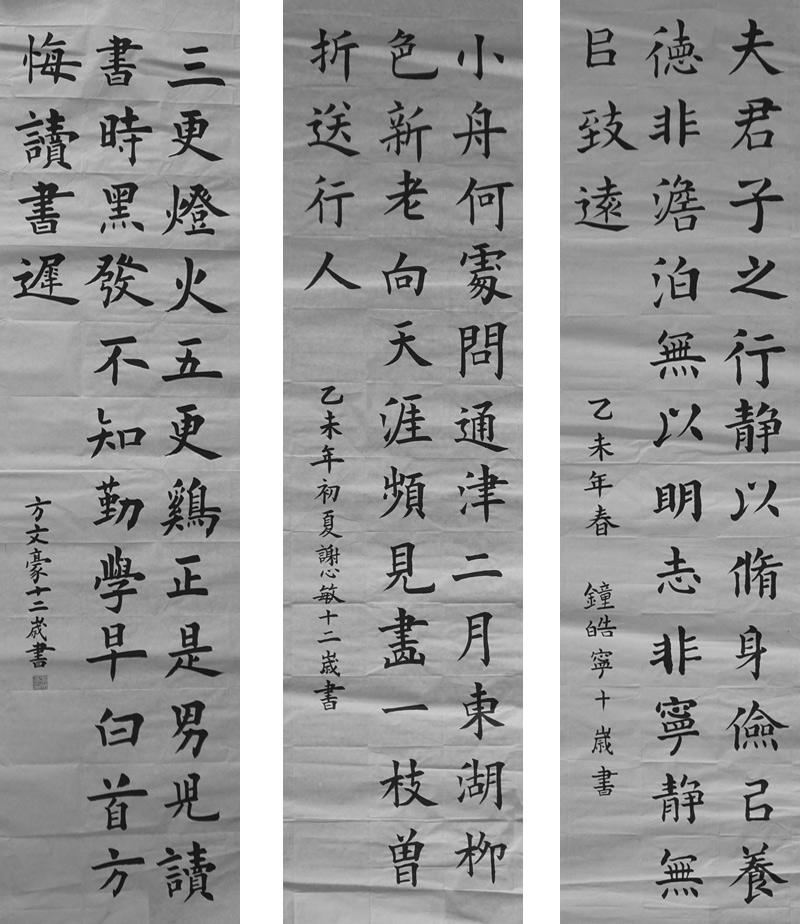 夫君子之行静以脩身儉㠯養
徳非澹泊無以明志非寧静無
㠯致遠
乙未年春 鐘皓寧十歲書
小舟何處問通津二月東湖柳
色新老向天涯頻見畫一枝曾
折送行人
乙未年初夏謝心敏十二歲書
三更燈火五更鷄正是男児讀
書時黑發不知勤學早白首方
悔讀書遲
方文豪十二歲書